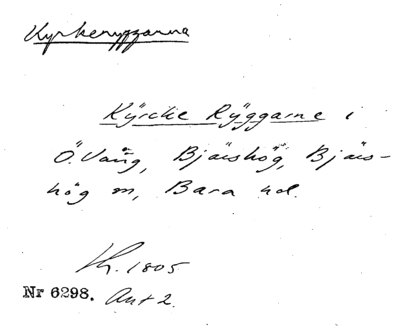 Kyrkeryggarna
Kÿrcke Rÿggarne i
Ö. Vång, Bjärshög, Bjärs-
hög sn, Bara hd.
Kh. 1805
Nr 6298. Ant 2.